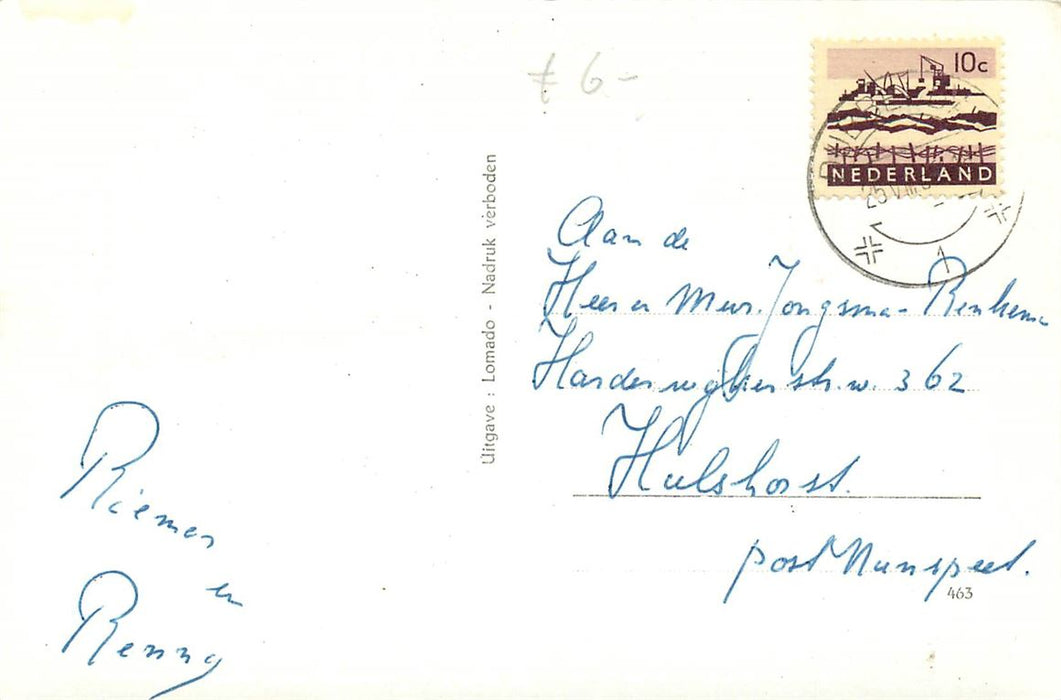 ₤ 6-
10c
NEDERLAND
25 VIII
1
Uitgave : Lomado - Nadruk verboden
Aan de
Heer en Mevr. Jongsma- Benkema
Harderwijkerstr.w. 362
Hulshorst.
post Nunspeet.
463
Riemer
en
Renny